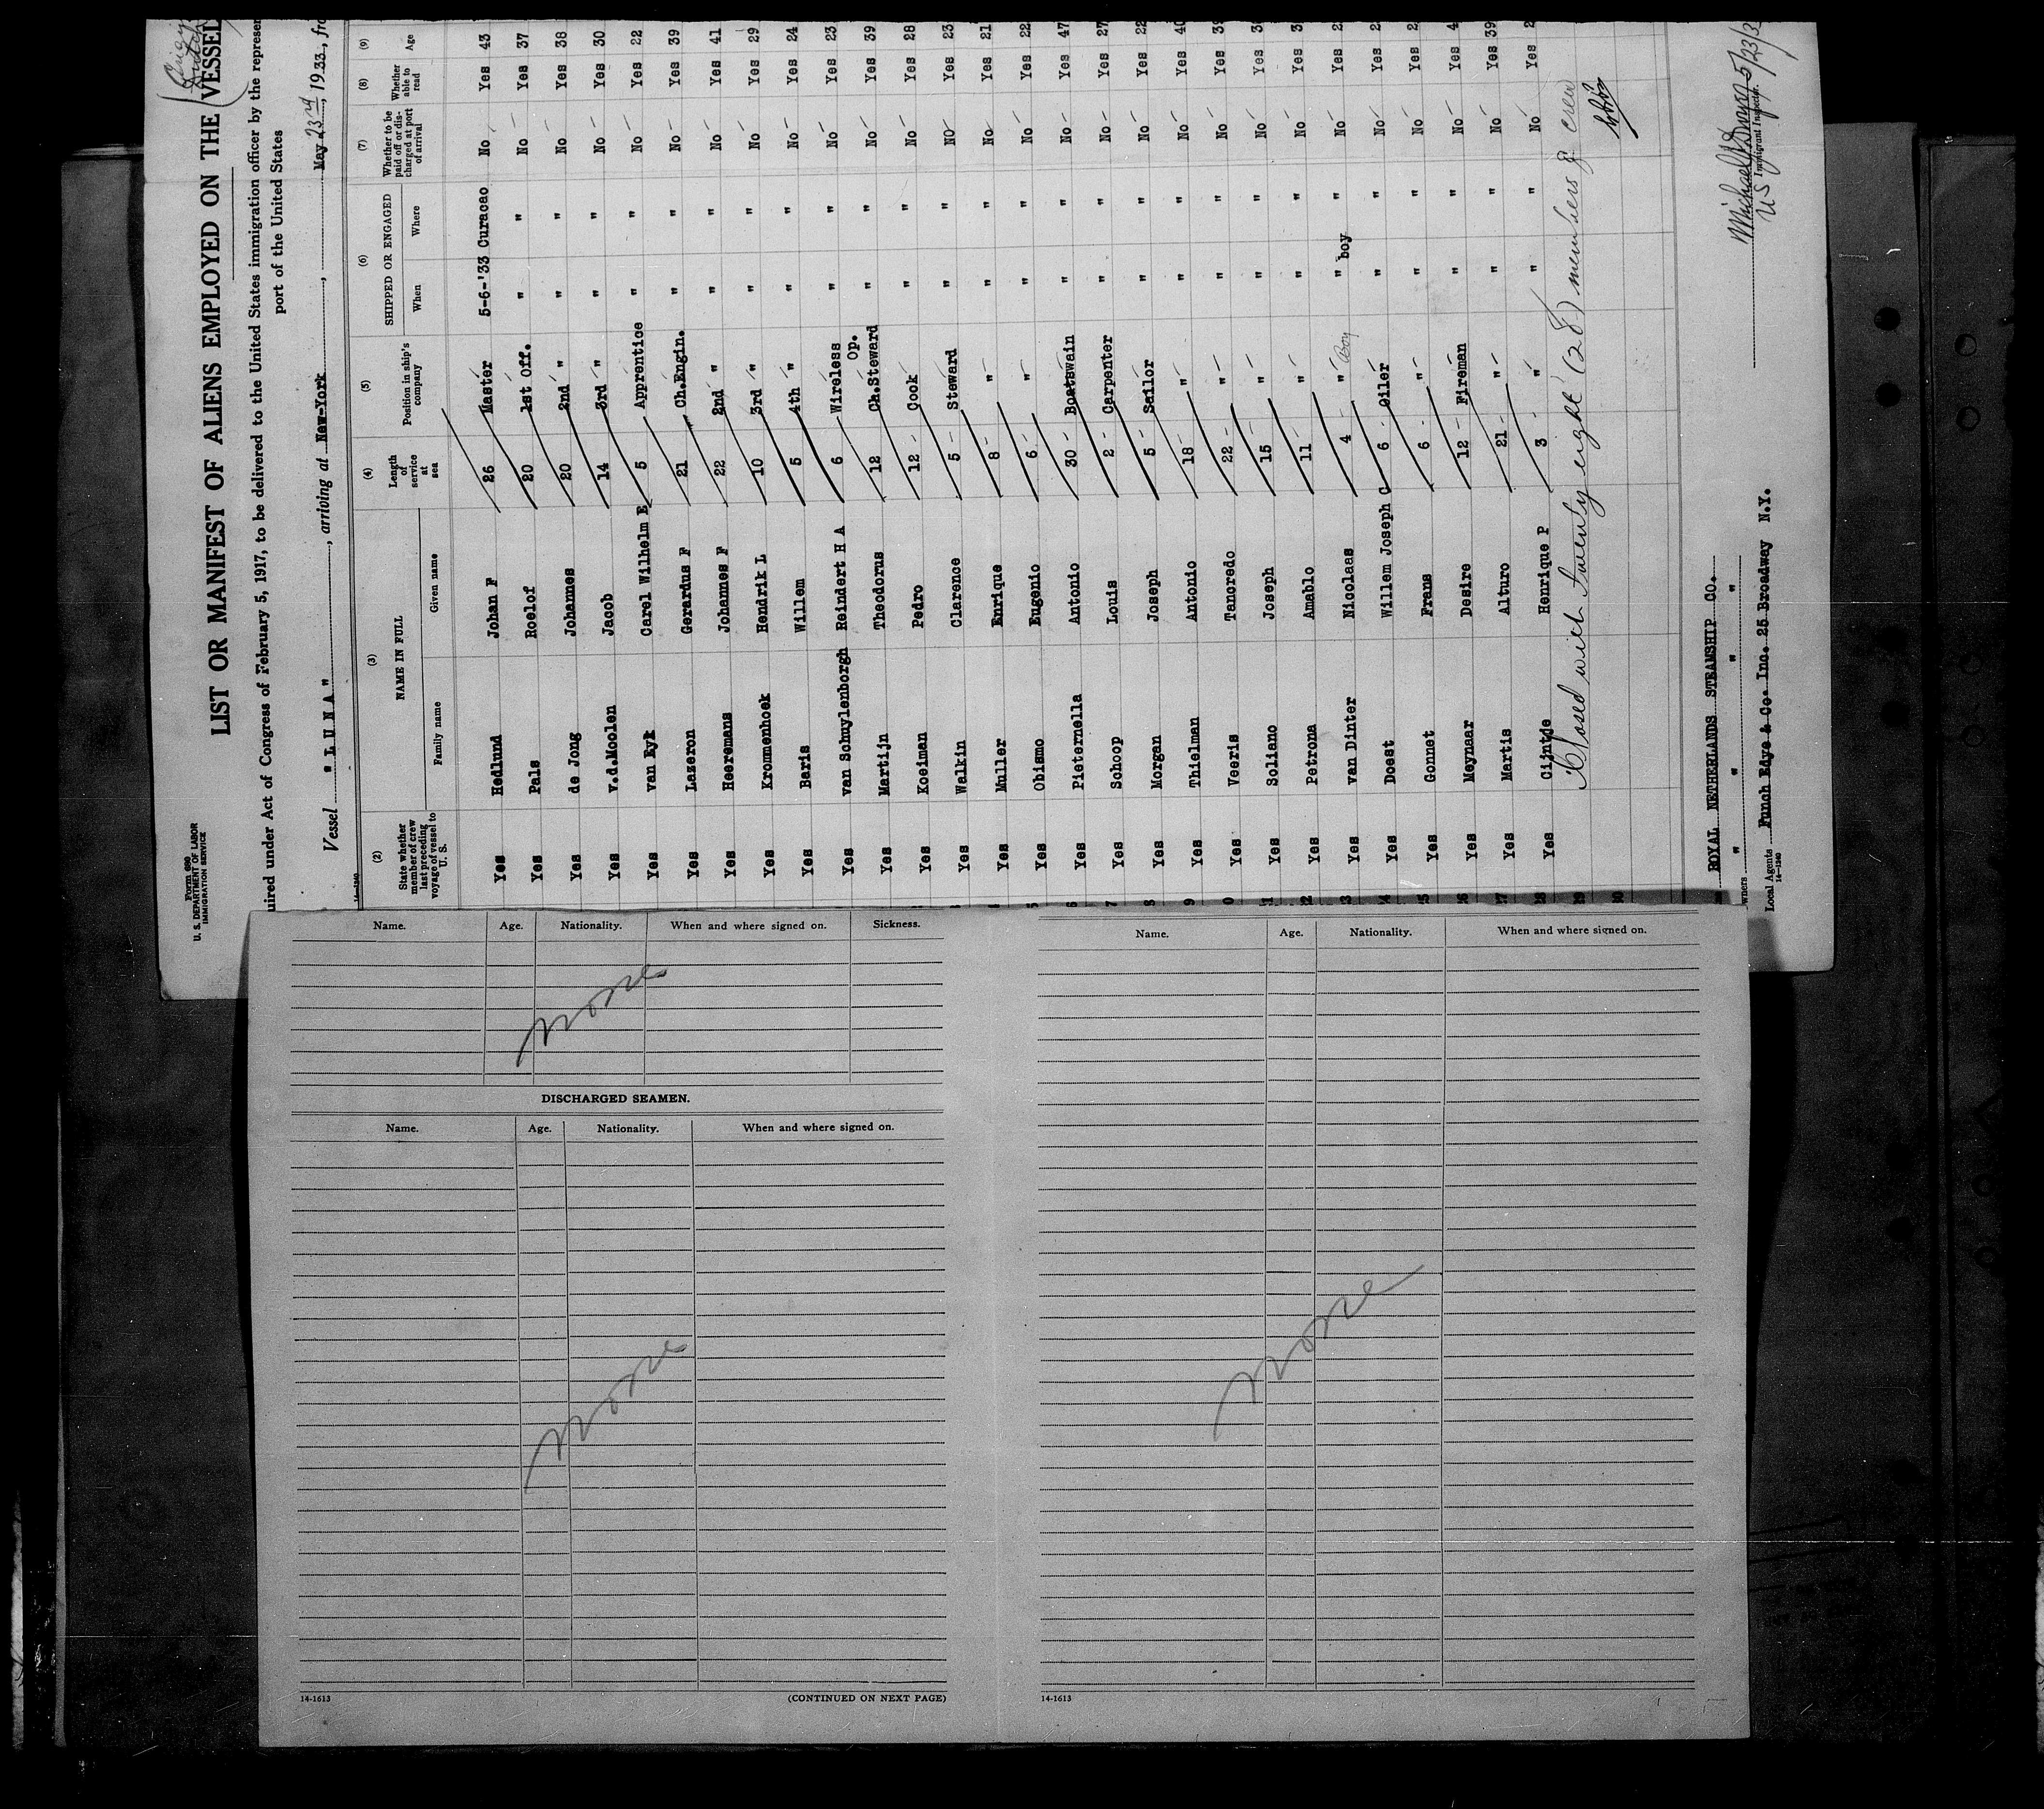 Form 680
U. S. DEPARTMENT OF LABOR
IMMIGRATION SERVICE
LIST OR MANIFEST OF ALIENS EMPLOYED ON THE VESSEL
uired under Act of Congress of February 5, 1917, to be delivered to the United States immigration officer by the represen
port of the United States
Vessel "LUNA", arriving at New-York, May 23rd, 1933, fro
(2) (3) (4) (5) (6) (7) (8) (9)
State whether member of crew last preceding voyage of vessel to U. S. NAME IN FULL Family name Given name Length of service at sea Position in ship's company SHIPPED OR ENGAGED When Where Whether to be paid off or discharged at port of arrival Whether able to read Age
Yes Hedlund Johan F 26 Master 5-6-'33 Curacao No Yes 43
Yes Pals Roelof 20 1st Off. " " No Yes 37
Yes de Jong Johannes 20 2nd " " " No Yes 38
Yes v.d.Moolen Jacob 14 3rd " " " No Yes 30
Yes van Eyk Carel Wilhelm E 5 Apprentice " " No Yes 22
Yes Lazeron Gerardus F 21 Ch.Engin. " " No Yes 39
Yes Heeremans Johannes F 22 2nd " " " No Yes 41
Yes Krommenhoek Hendrik L 10 3rd " " " No Yes 29
Yes Baris Willem 5 4th " " " No Yes 24
Yes van Schuylenborgh Reindert H A 6 Wireless Op. " " No Yes 23
Yes Martijn Theodorus 12 Ch.Steward " " No Yes 39
Yes Koeiman Pedro 12 Cook " " No Yes 28
Yes Walkin Clarence 5 Steward " " NO Yes 23
Yes Muller Enrique 8 " " " No Yes 21
5 Yes Obismo Eugenio 6 " " " No Yes 22
6 Yes Pieternella Antonio 30 Boatswain " " No Yes 47
7 Yes Schoop Louis 2 Carpenter " " No Yes 27
8 Yes Morgan Joseph 5 Sailor " " No Yes 22
9 Yes Thielman Antonio 18 " " " No Yes 40
0 Yes Veeris Tancredo 22 " " " No Yes
21 Yes Soliano Joseph 15 " " " No Yes
22 Yes Petrona Amablo 11 " " " No Yes
23 Yes van Dinter Nicolaas 4 " Boy " boy " No Yes
24 Yes Doest Willem Joseph C 6 Oiler " " No Yes
25 Yes Gonnet Frans 6 " " " No Yes
26 Yes Meynaar Desire 12 Fireman " " No Yes
27 Yes Martis Alturo 21 " " " No Yes 39
28 Yes Cijntje Henrique P 3 " " " No Yes
29 Closed with twenty eight (28) members of crew
30
ROYAL NETHERLANDS STEAMSHIP CO.
wners " " " "
Local Agents Funch Edye & Co. Inc. 25 Broadway N.Y.
14-1240
5/23/33
US Immigrant Inspector.
Name. Age. Nationality. When and where signed on. Sickness.
none
DISCHARGED SEAMEN.
Name. Age. Nationality. When and where signed on.
none
14-1613 (CONTINUED ON NEXT PAGE)
Name. Age. Nationality. When and where signed on.
none
14-1613